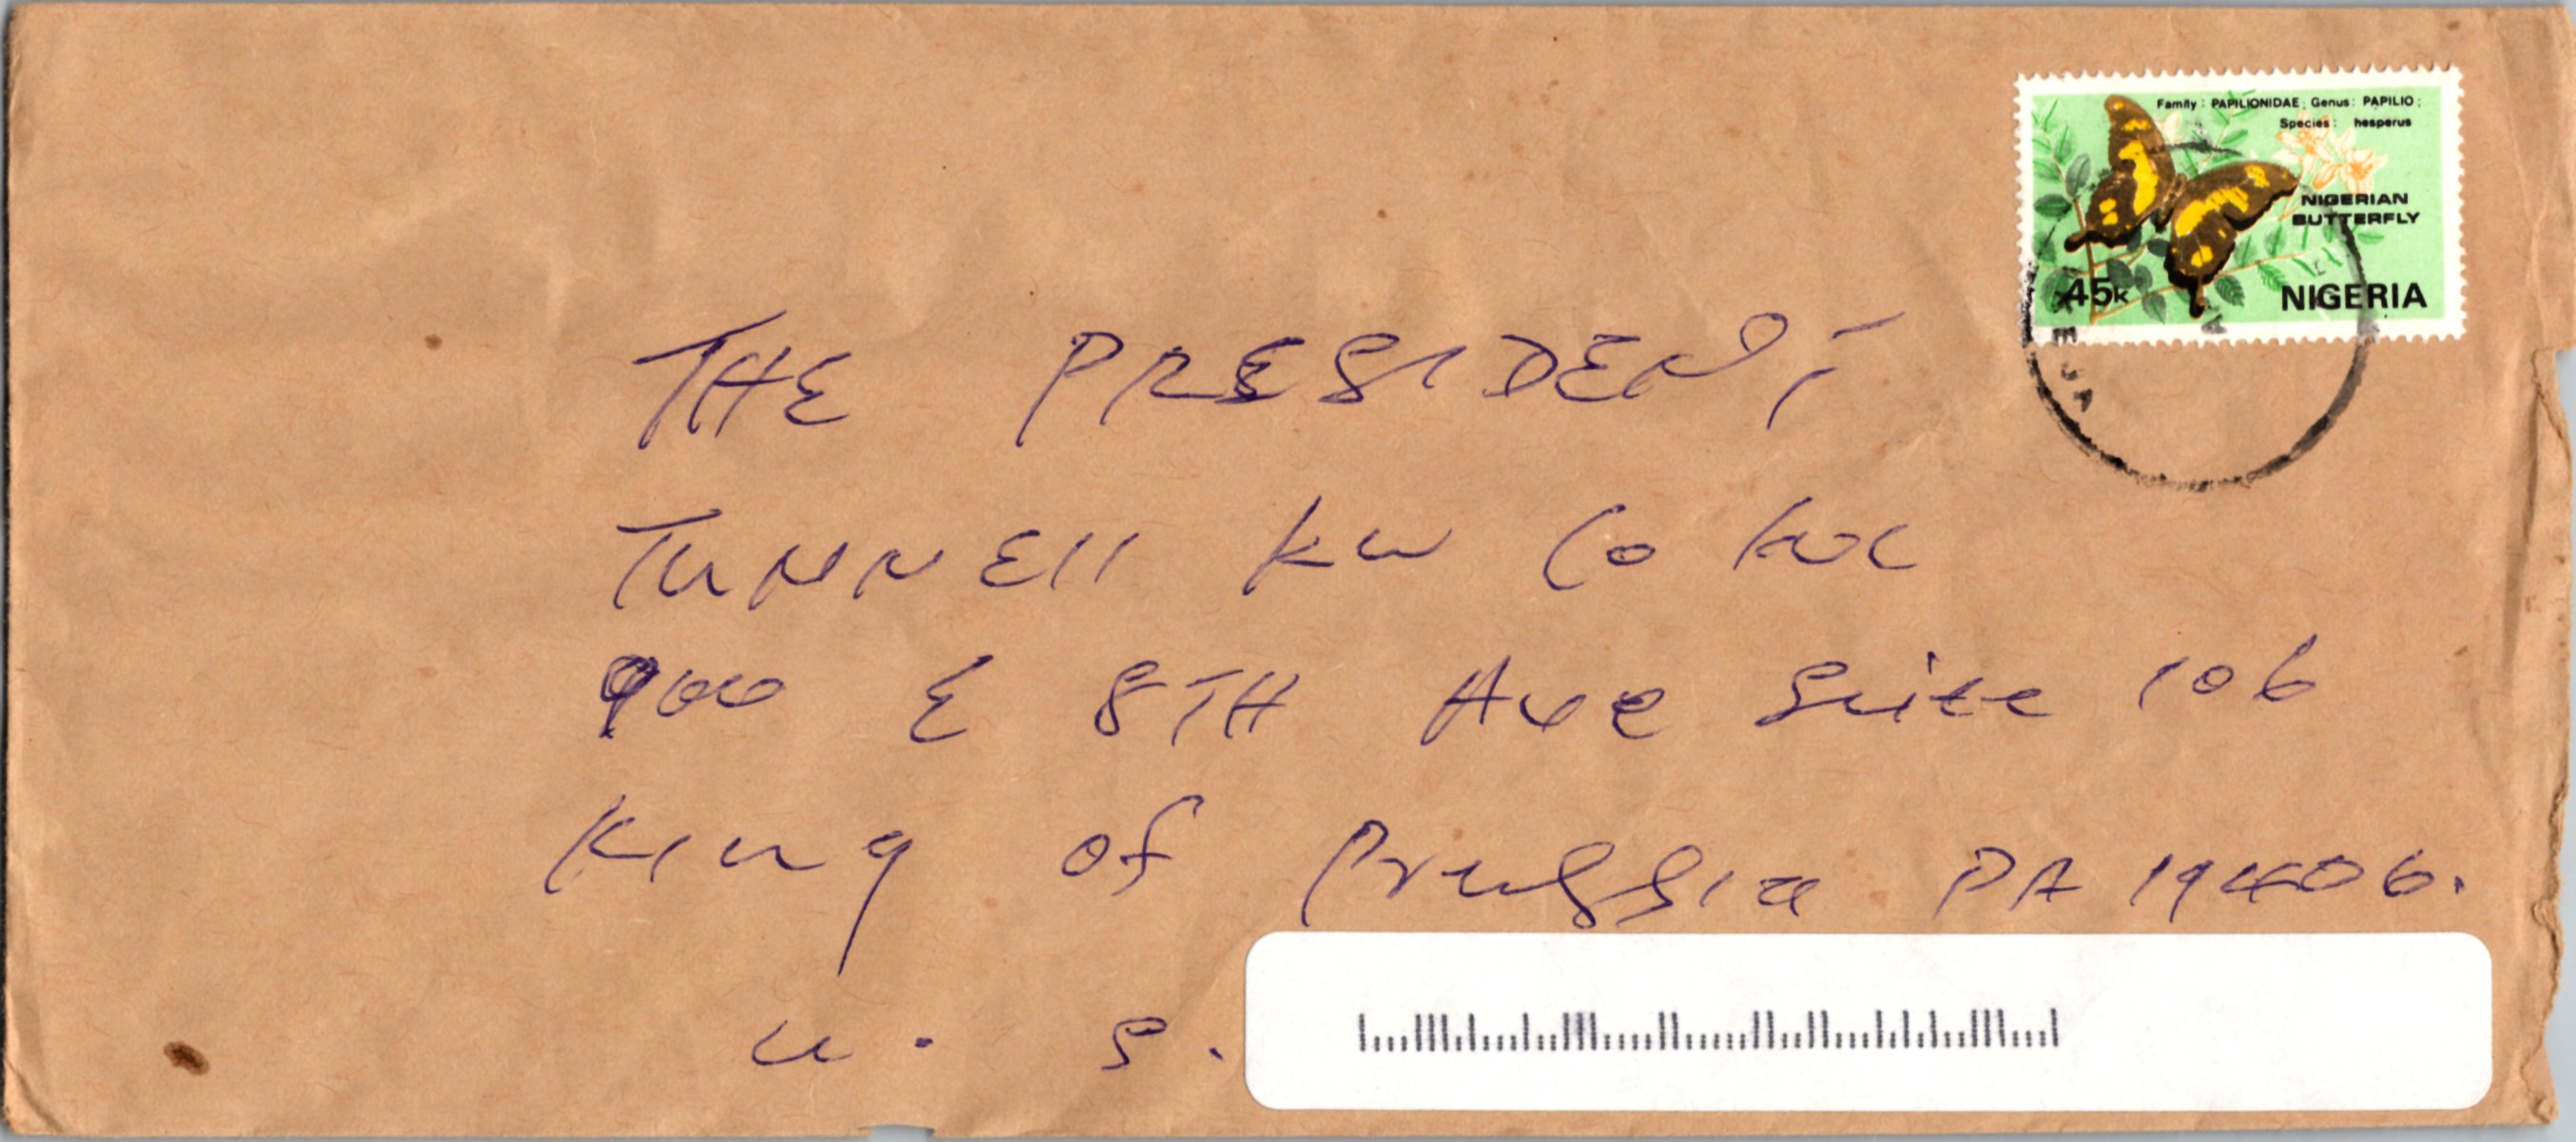 Family : PAPILIONIDAE ; Genus : PAPILIO ;
Species : hesperus
NIGERIAN
BUTTERFLY
45k NIGERIA
EJA
THE PRESIDENT
TUNNEll KW Co
900 E 8TH Ave Suite 106
King of Prussia PA 19406.
U. S.